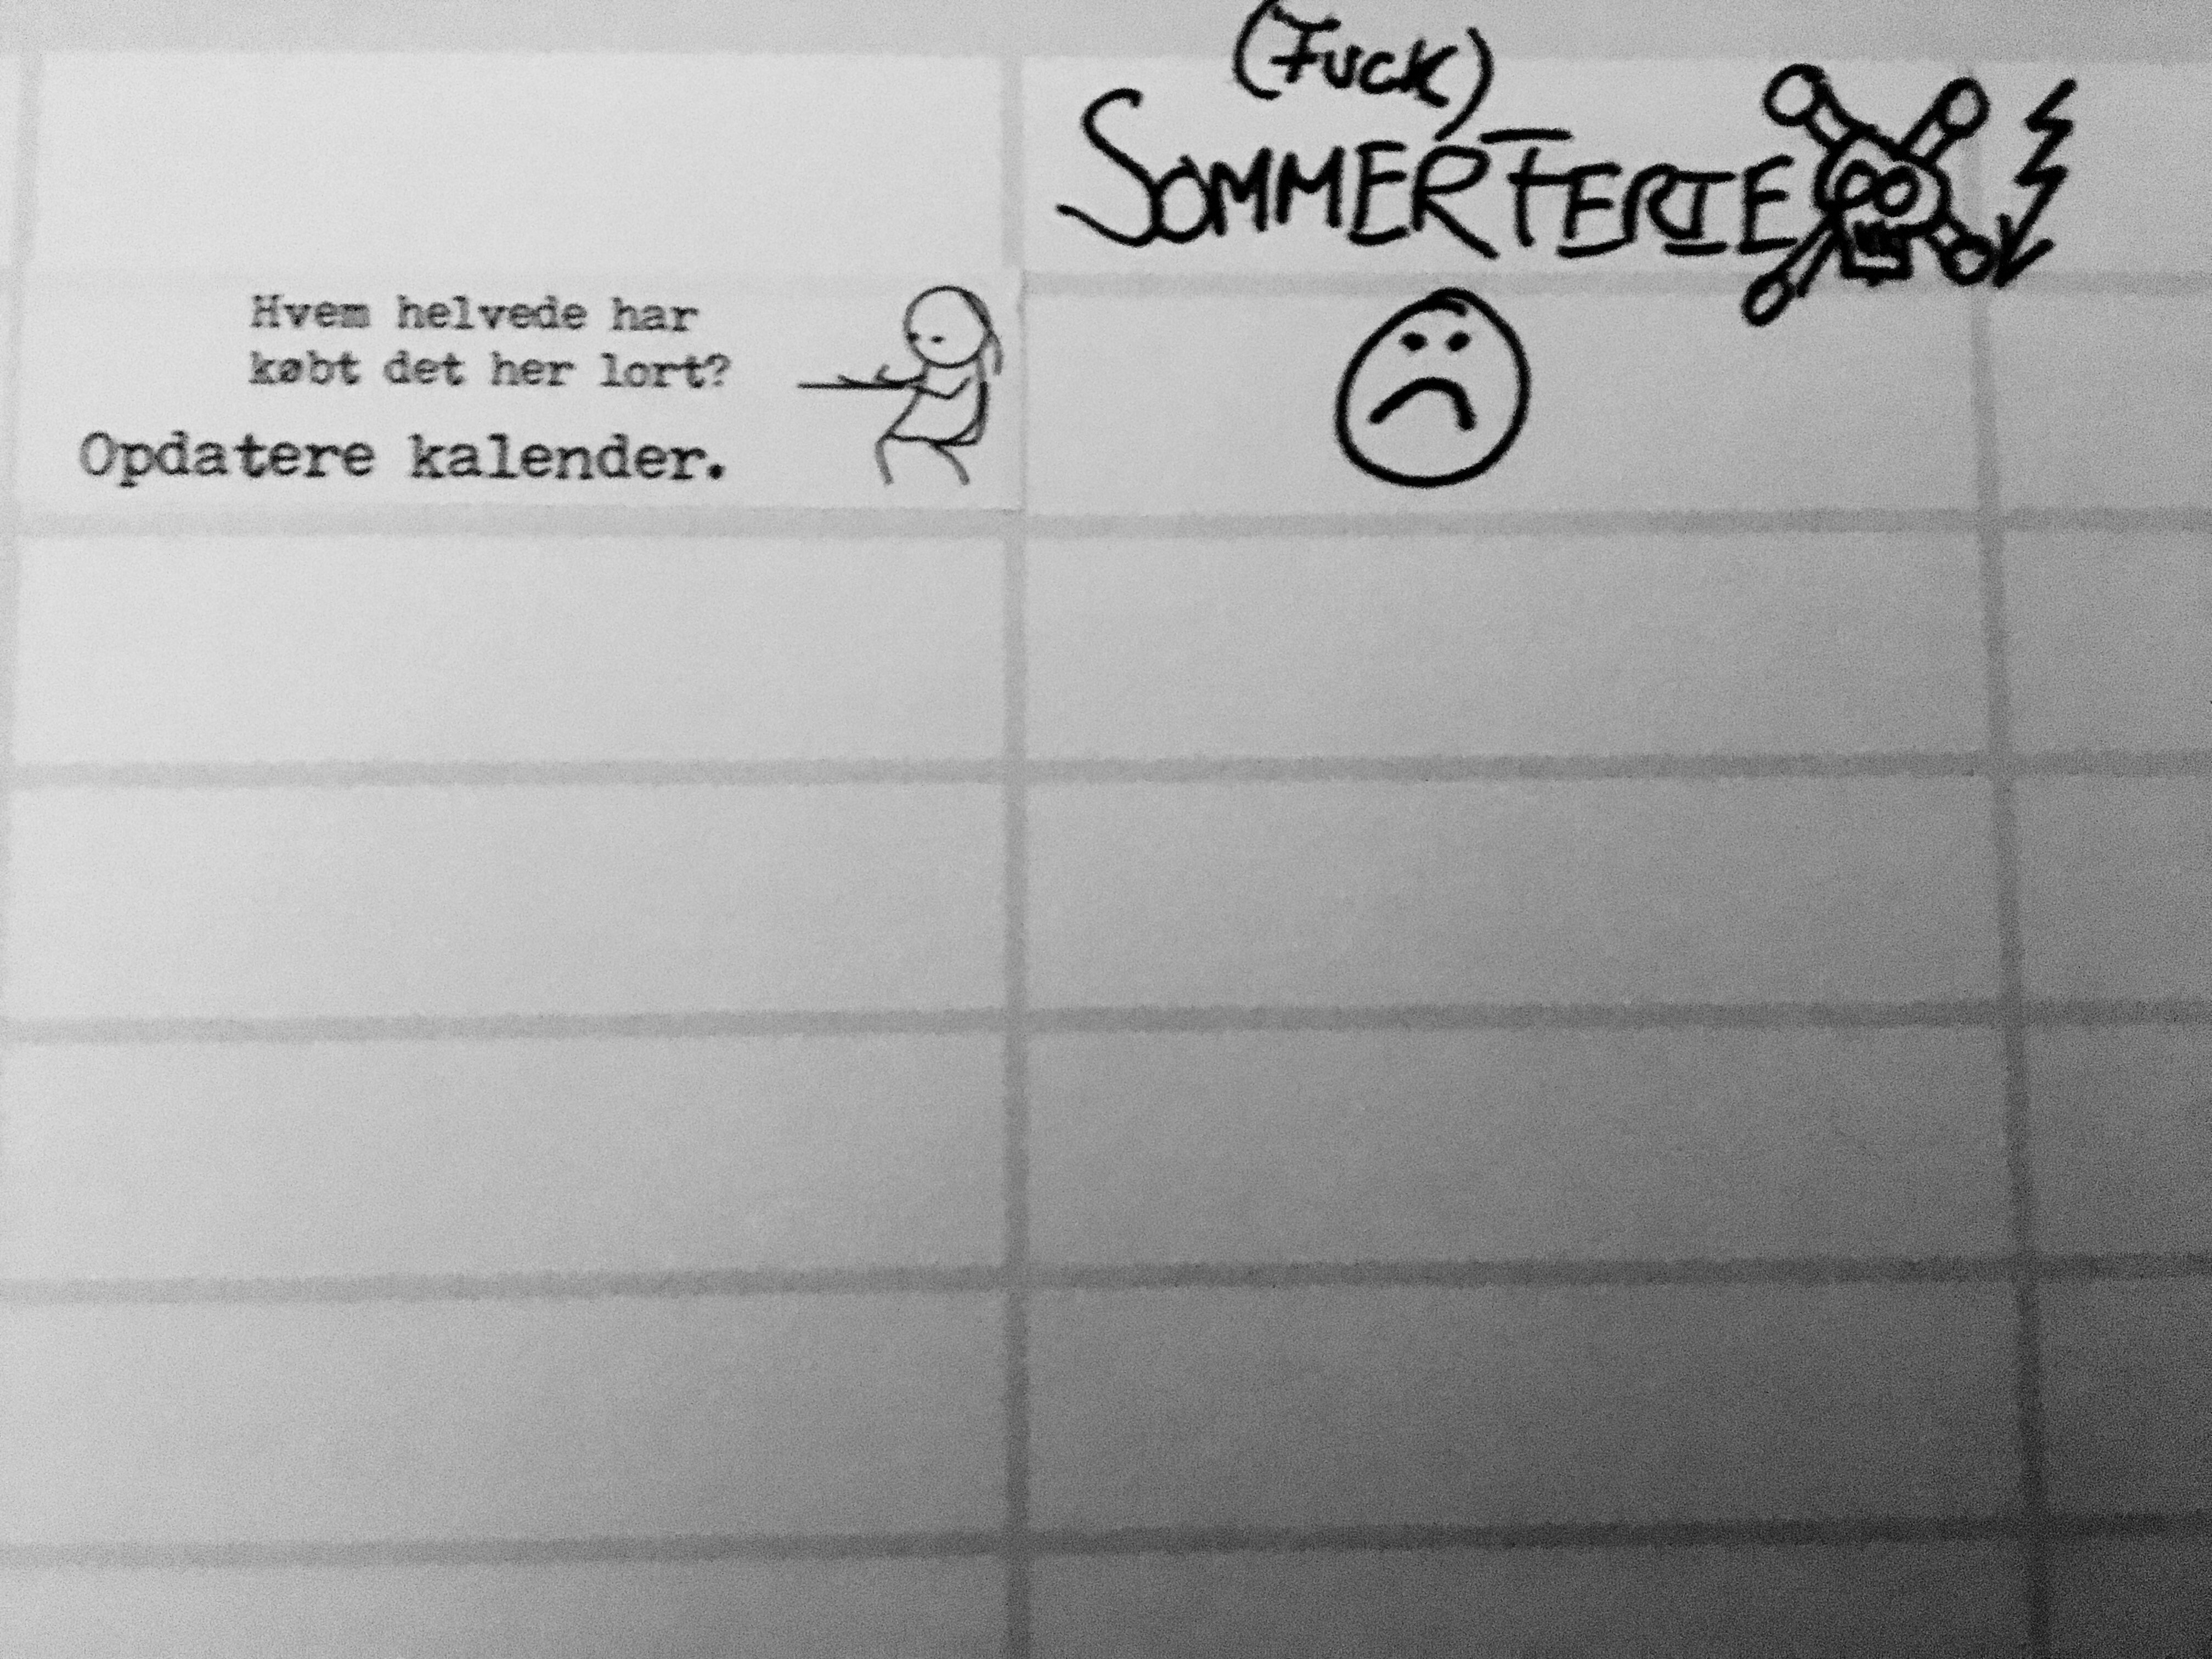 (Fuck)
SOMMERFERIE
Hvem helvede har
købt det her lort?
Opdatere kalender.